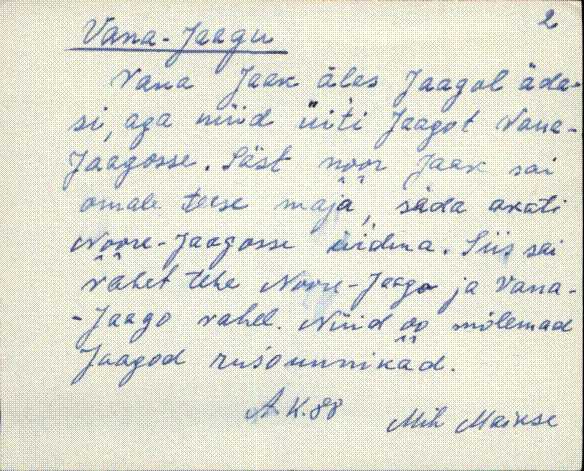 2
Vana-Jaagu
Vana Jaak älas Jaagol äda-
si, aga nüid üiti Jaagot Vana-
Jaagosse. Säst noor Jaak sai
omale teese maja, säda akati
Noore-Jaagosse üidma. Siis sai
vahet tehe Noore-Jaago ja Vana-
-Jaago vahel. Nüid oo mõlemad
Jaagod rusounnikad.
A.K. 88
Mih Maikse